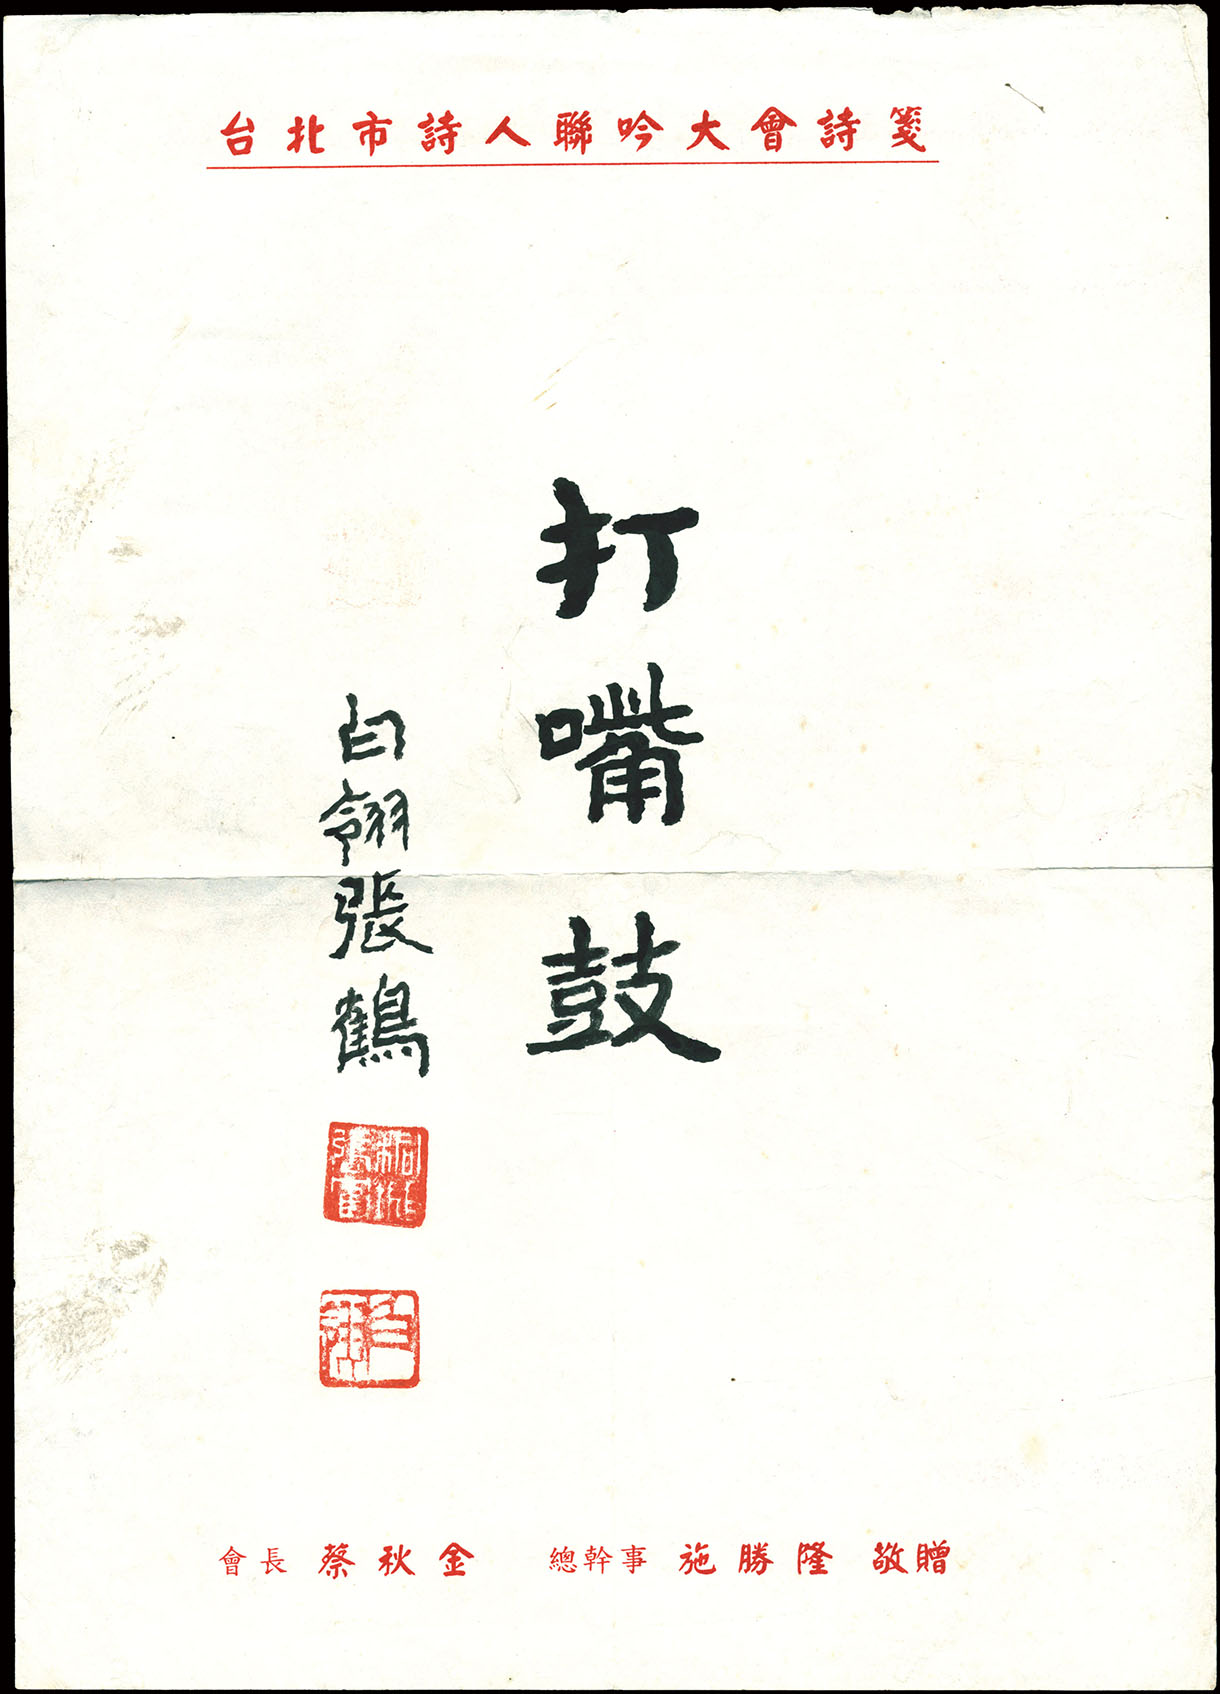 台北市詩人聯吟大會詩箋
打嘴鼓
白翎張鶴
會長 蔡秋金 總幹事 施勝隆 敬贈